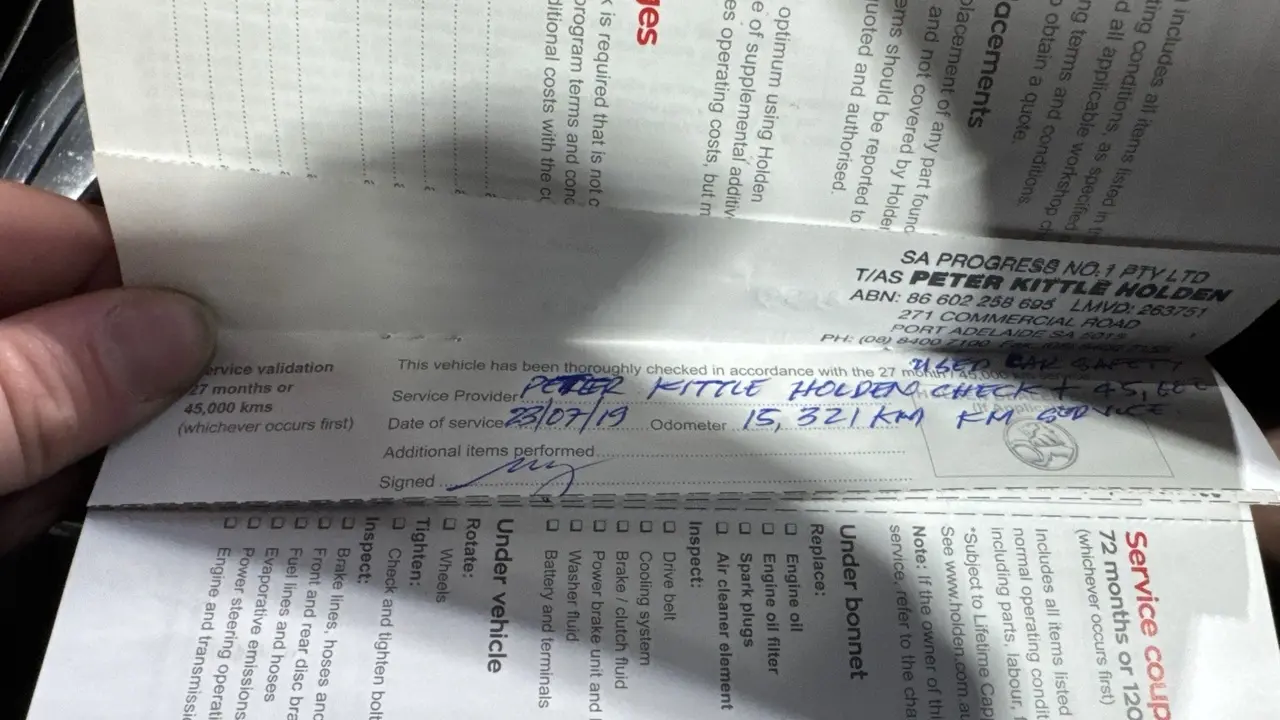 ges
k is required that is not c
program terms and conc
ditional costs with the cu
optimum using Holden
e of supplemental additiv
es operating costs, but m
acements
placement of any part found
and not covered by Holder
ems should be reported to
uoted and authorised.
includes all items listed in
ting conditions, as specified
d all applicable workshop
ng terms and conditions.
o obtain a quote.
SA PROGRESS NO.1 PTY LTD
T/AS PETER KITTLE HOLDEN
ABN: 86 602 258 695 LMVD: 263751
271 COMMERCIAL ROAD
PORT ADELAIDE SA 5015
PH: (08) 8400 7100
ervice validation
27 months or
45,000 kms
(whichever occurs first)
This vehicle has been thoroughly checked in accordance with the 27 month
USED CAR SAFETY
Service Provider PETER KITTLE HOLDEN CHECK + 45,000
Date of service 23/07/19 Odometer 15,321 KM KM SERVICE
Additional items performed
Signed
Service coup
72 months or 120
(whichever occurs first)
Includes all items listed
normal operating condit
including parts, labour, f
*Subject to Lifetime Capp
See www.holden.com.au
Note: If the owner of thi
service, refer to the cha
Under bonnet
Replace:
Engine oil
Engine oil filter
Spark plugs
Air cleaner element
Inspect:
Drive belt
Cooling system
Brake / clutch fluid
Power brake unit and
Washer fluid
Battery and terminals
Under vehicle
Rotate:
Wheels
Tighten:
Check and tighten bolt
Inspect:
Brake lines, hoses and
Front and rear disc bra
Fuel lines and hoses
Evaporative emissions
Power steering operati
Engine and transmissi